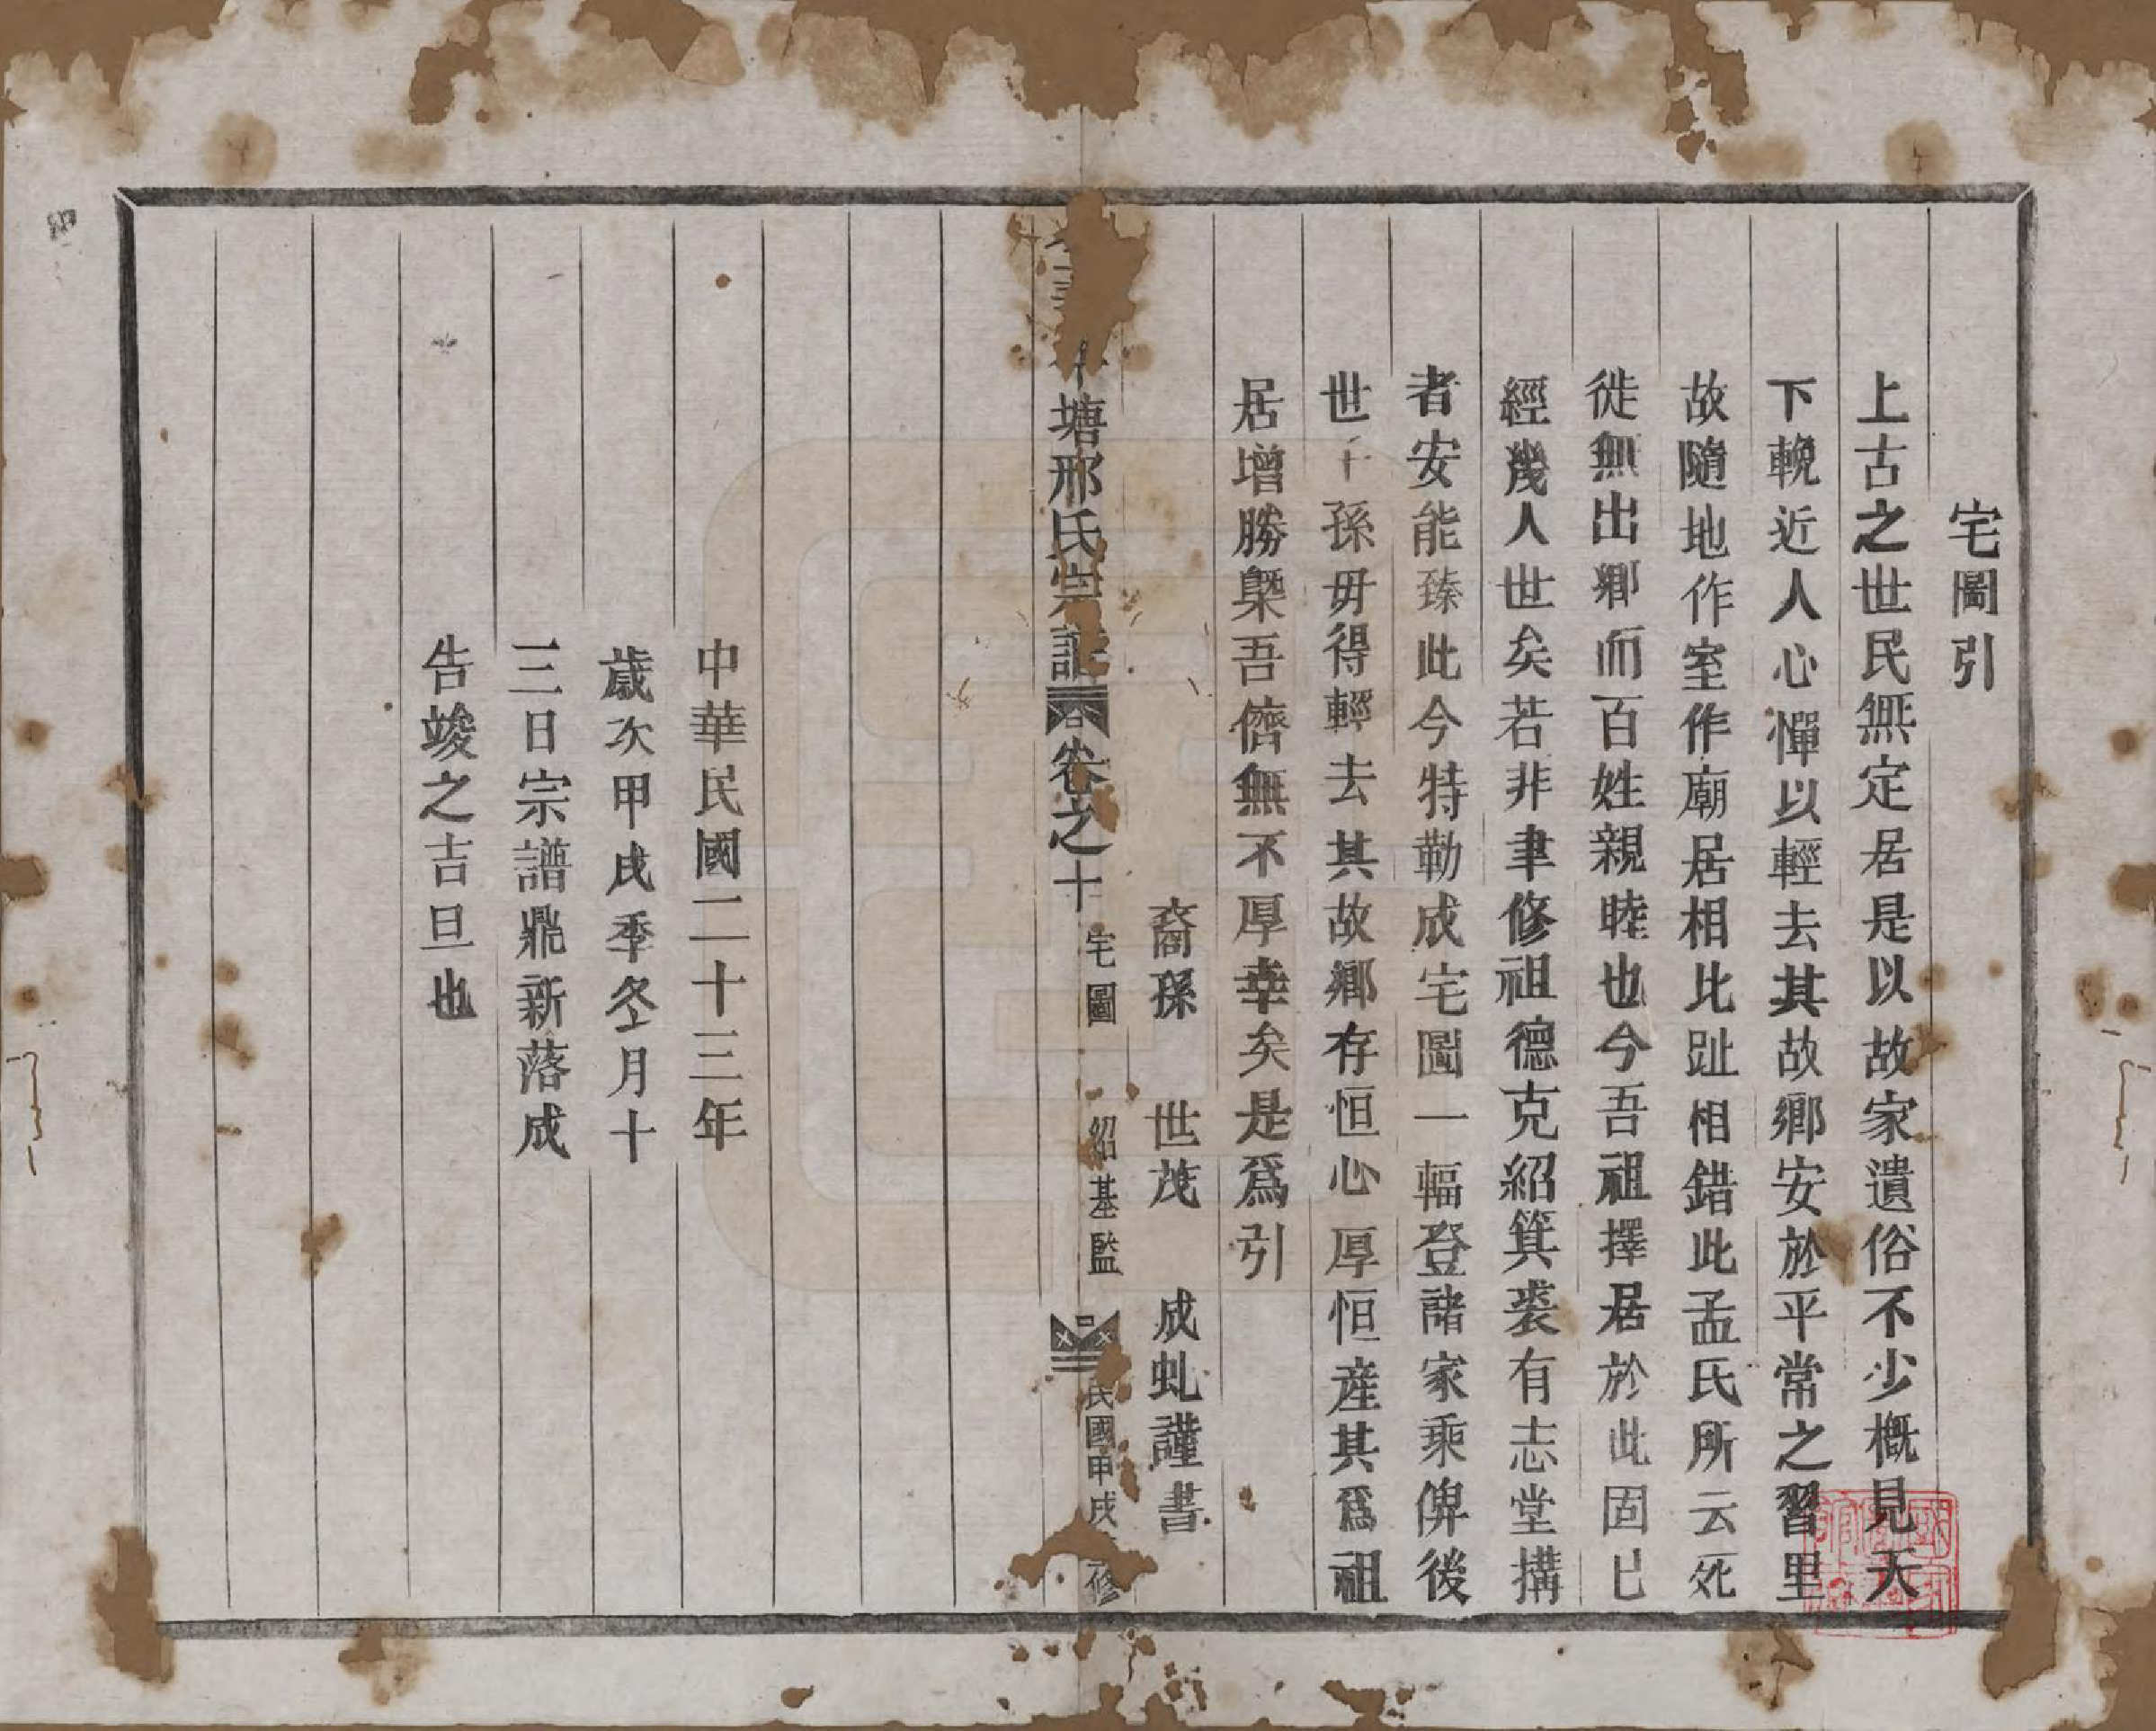 宅圖引
上古之世民無定居是以故家遺俗不少概見天
下輓近人心憚以輕去其故鄉安於平常之習里
故隨地作室作廟居相比趾相錯此孟氏所云死
徙無出鄉而百姓親睦也今吾祖擇居於此固已
經幾人世矣若非聿修祖德克紹箕裘有志堂搆
者安能臻此今特勒成宅圖一輻登諸家乘俾後
世子孫毋得輕去其故鄉存恒心厚恒產其爲祖
居增勝槩吾儕無不厚幸矣是爲引
裔孫 世茂 成虬謹書
塘邢氏宗譜 卷之十 宅圖 紹基監 民國甲戌 修
中華民國二十三年
歲次甲戌季冬月十
三日宗譜鼎新落成
告竣之吉旦也